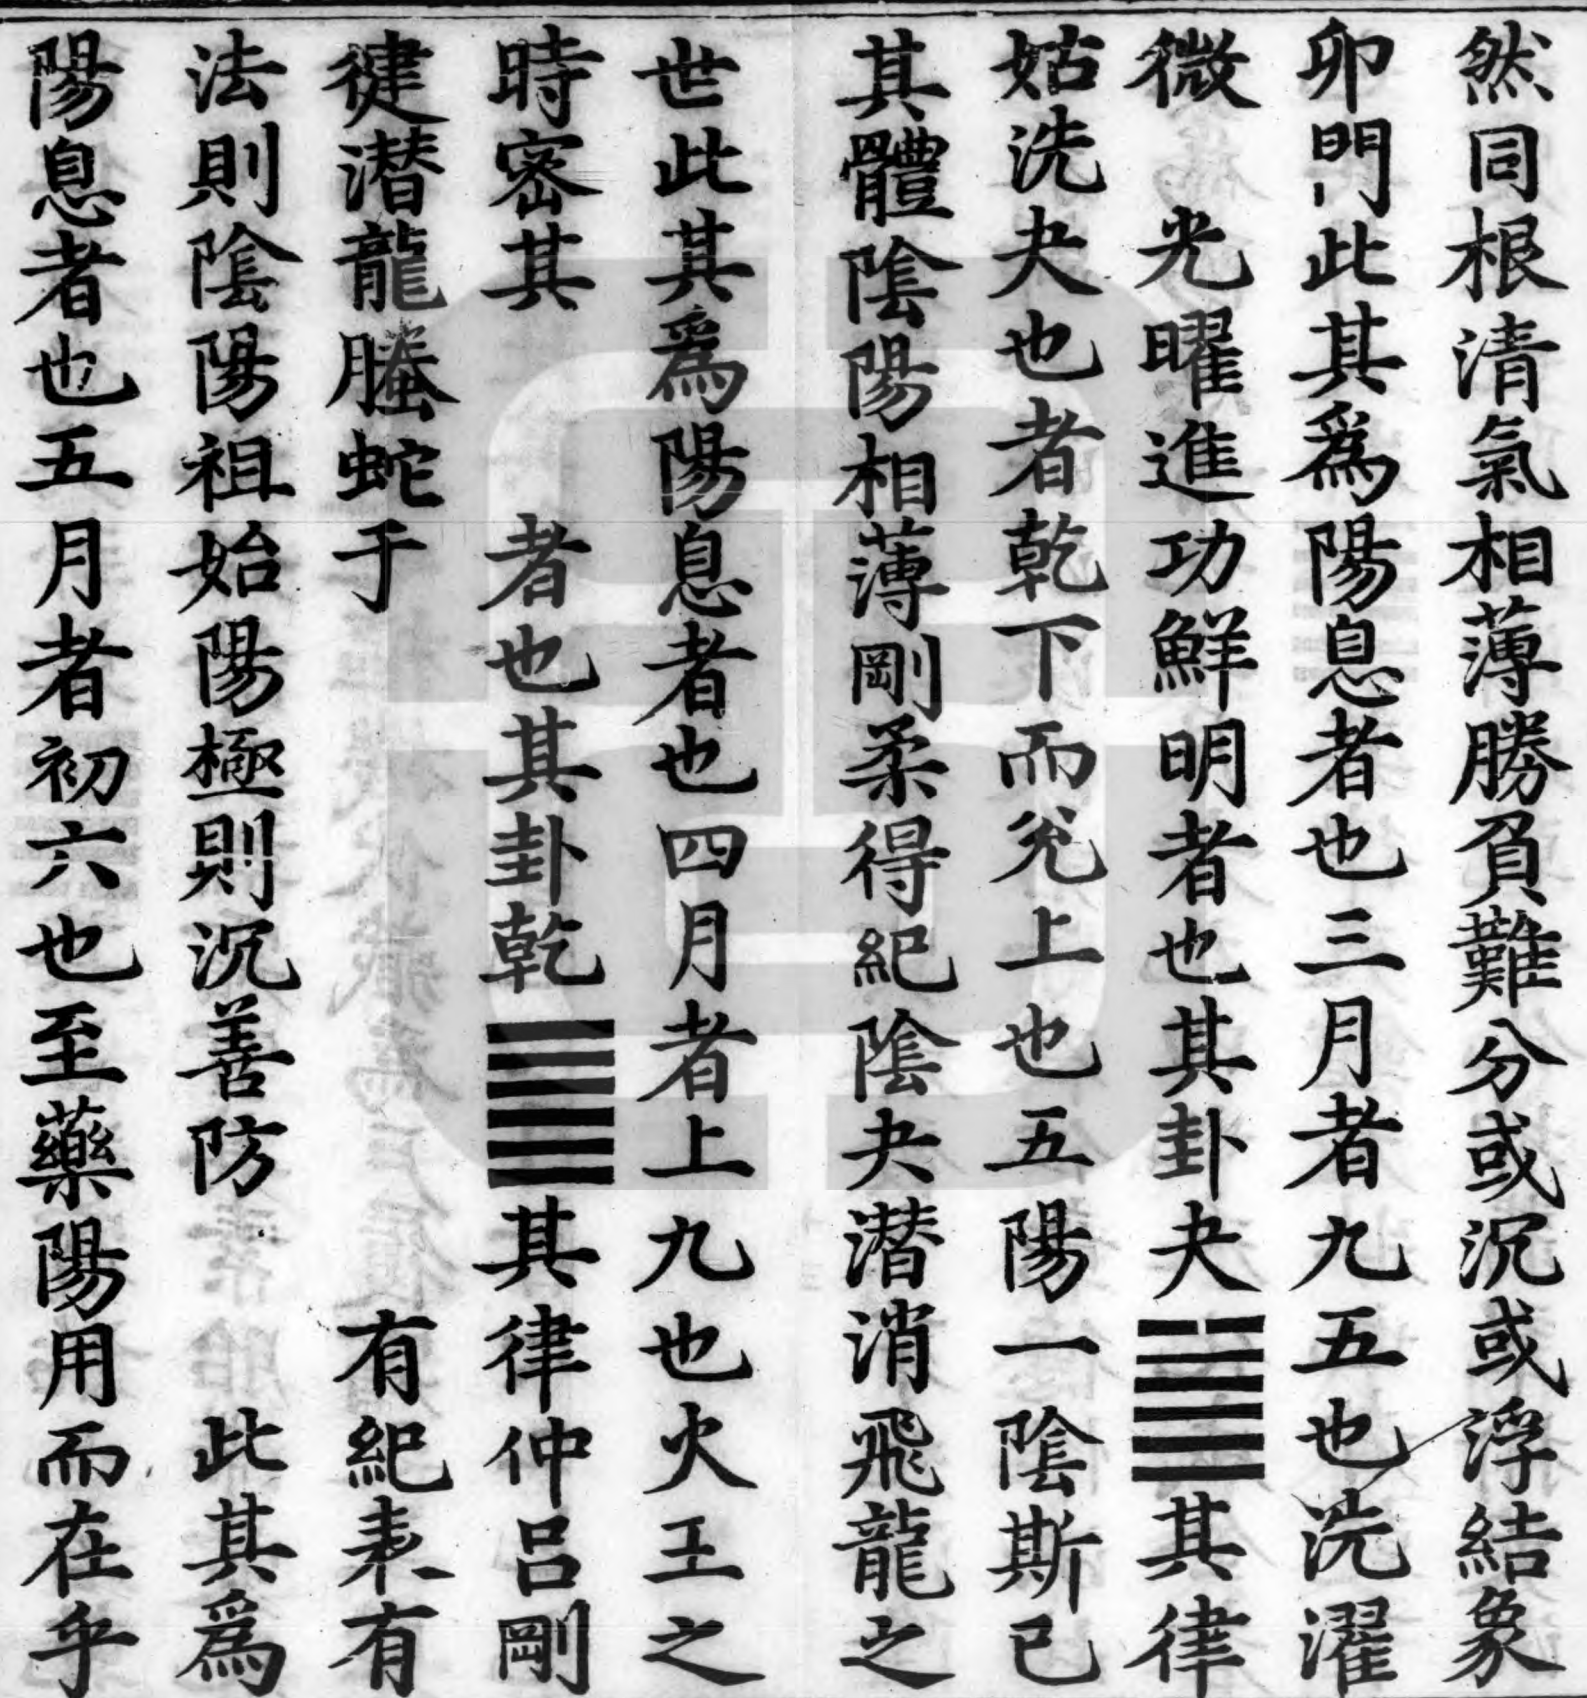 然同根清氣相薄勝負難分或沉或浮結象
卯門此其爲陽息者也三月者九五也洗濯
微 光曜進功鮮明者也其卦夬䷪其律
姑洗夬也者乾下而兊上也五陽一陰斯已
其體陰陽相薄剛柔得紀陰夬潜消飛龍之
世此其爲陽息者也四月者上九也火王之
時宻其 者也其卦乾䷀其律仲呂剛
健潜龍螣蛇于 有紀表有
法則陰陽祖始陽極則沉善防 此其爲
陽息者也五月者初六也至藥陽用而在乎